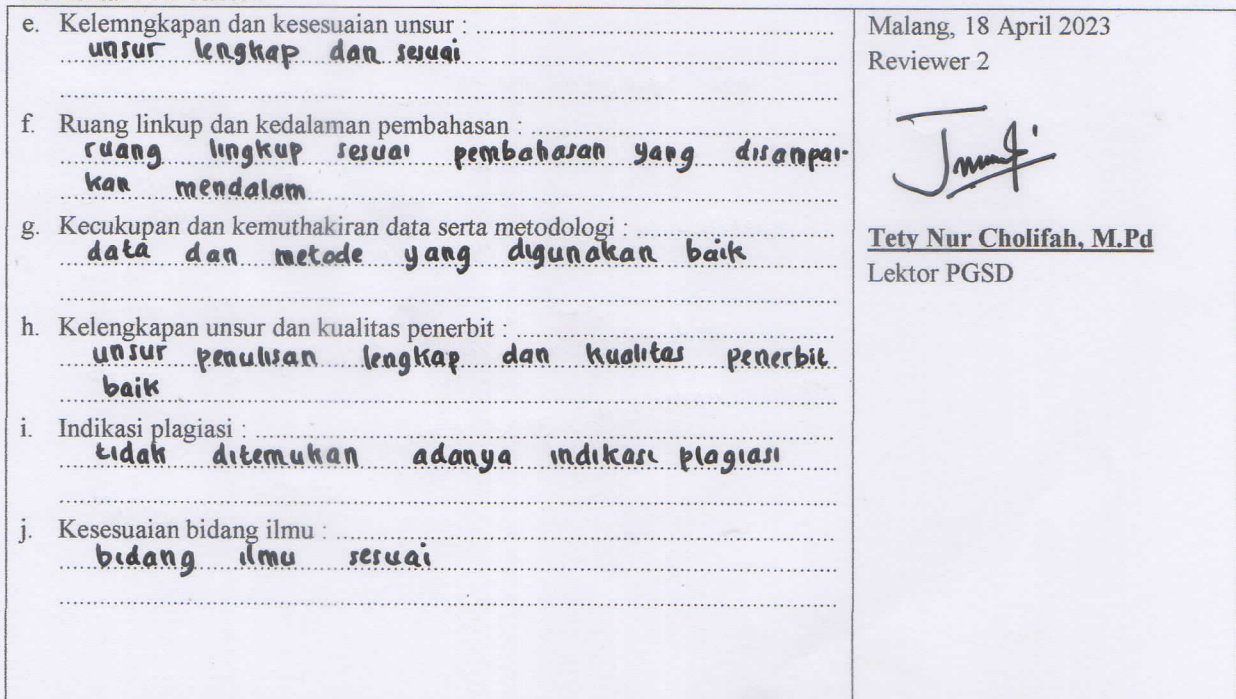 e. Kelemngkapan dan kesesuaian unsur :
unsur lengkap dan sesuai
f. Ruang linkup dan kedalaman pembahasan :
ruang lingkup sesuai pembahasan yang disampai-
kan mendalam
g. Kecukupan dan kemuthakiran data serta metodologi :
data dan metode yang digunakan baik
h. Kelengkapan unsur dan kualitas penerbit :
unsur penulisan lengkap dan kualitas penerbit
baik
i. Indikasi plagiasi :
tidak ditemukan adanya indikasi plagiasi
j. Kesesuaian bidang ilmu :
bidang ilmu sesuai
Malang, 18 April 2023
Reviewer 2
Tety Nur Cholifah, M.Pd
Lektor PGSD